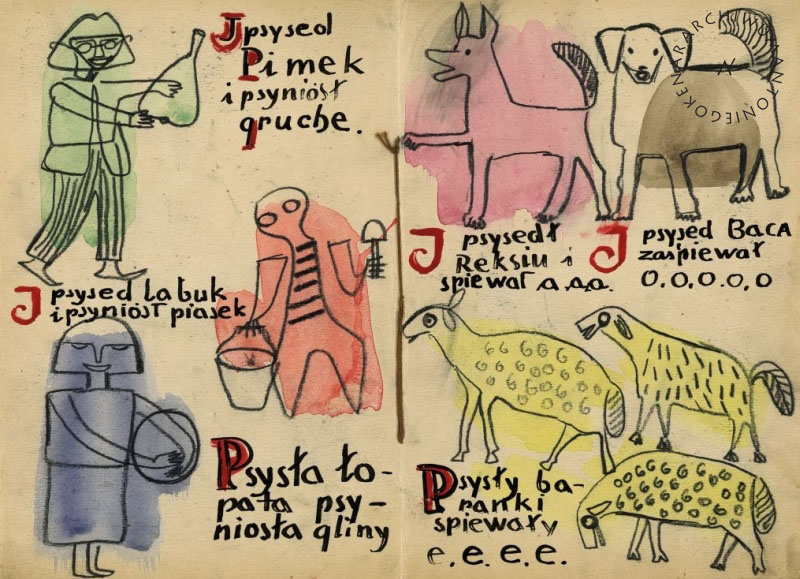 J psysed
Pimek
i psyniósł
gruche.
J psysed Labuk
i psyniósł piasek
Psysła ło-
pata psy-
niosła gliny
J psysedł
Reksiu i
śpiewał a.a.a.
J psysed BACA
zaśpiewał
O.O.O.O.O
Psysły ba-
ranki
śpiewały
e.e.e.e.
ARCHIWUM ANTONIEGO KENTRA